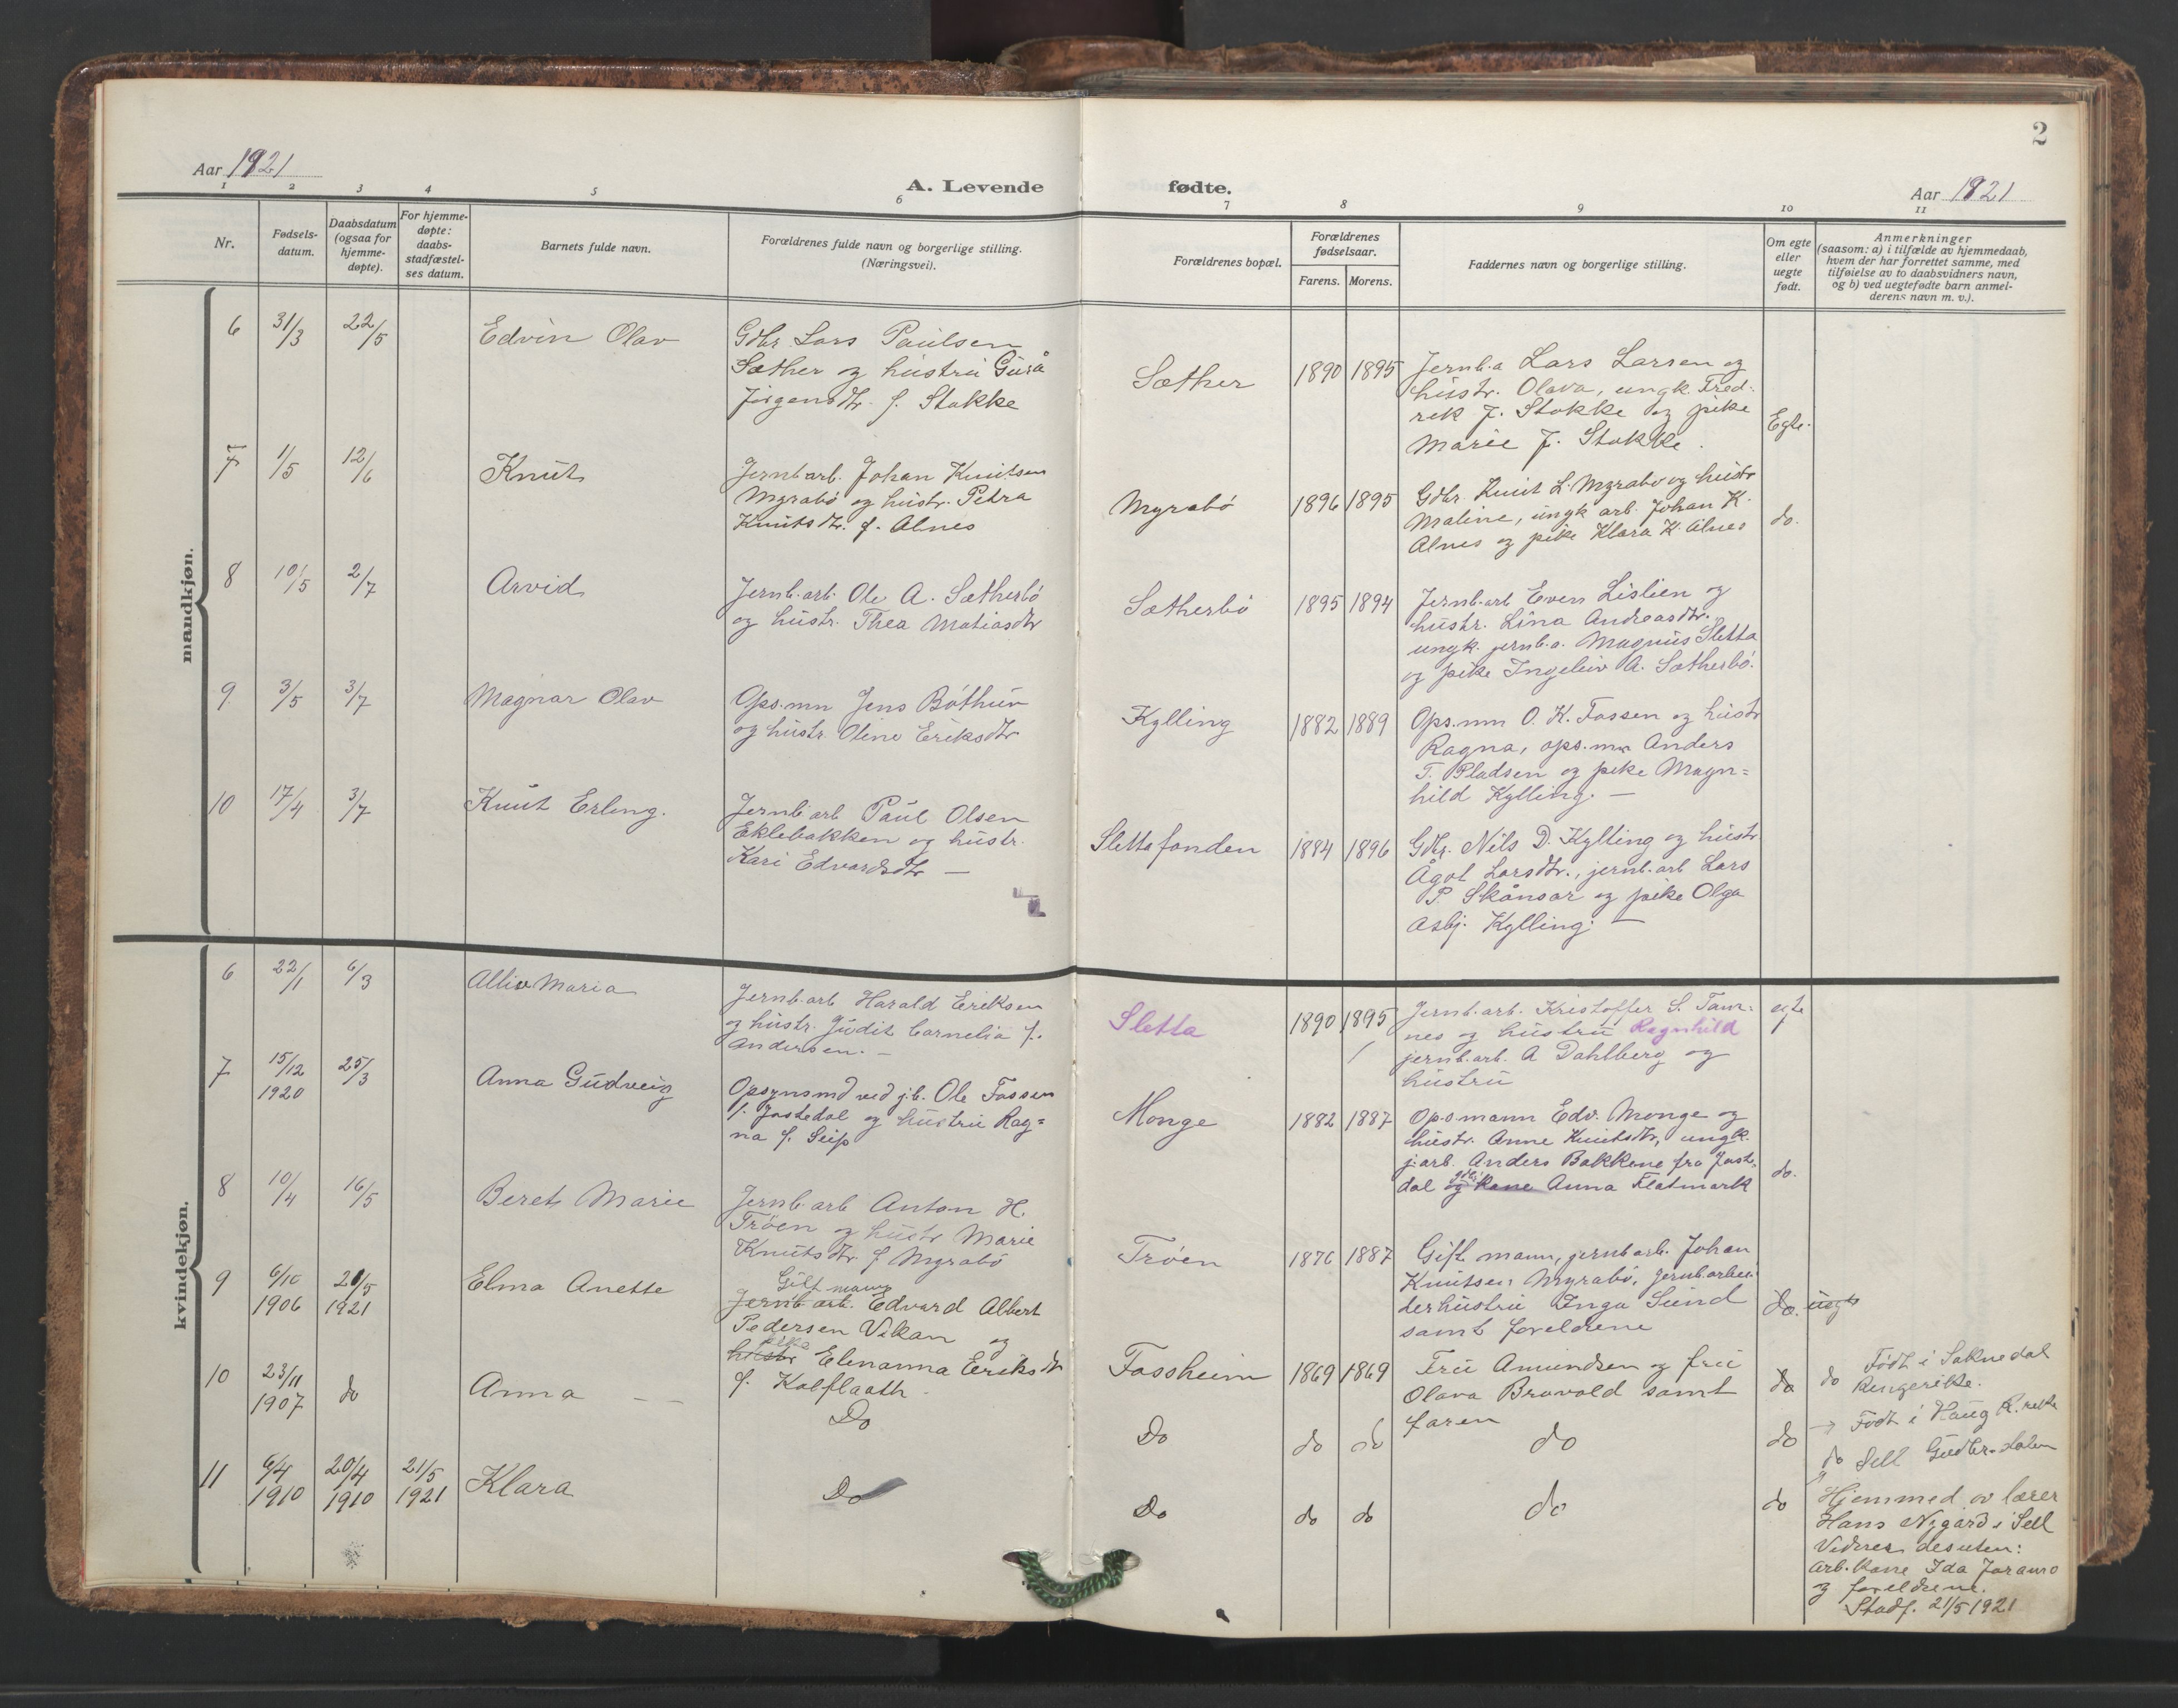 2
Aar 1921
A. Levende
fødte.
Aar 1921
1 2 3 4 5 6 7 8 9 10 11
Nr.
Fødsels-
datum.
Daabsdatum
(ogsaa for
hjemme-
døpte).
For hjemme-
døpte:
daabs-
stadfæstel-
ses datum.
Barnets fulde navn.
Forældrenes fulde navn og borgerlige stilling.
(Næringsvei).
Forældrenes bopæl.
Forældrenes
fødselsaar.
Farens. Morens.
Faddernes navn og borgerlige stilling.
Om egte
eller
uegte
født.
Anmerkninger
(saasom: a) i tilfælde av hjemmedaab,
hvem der har forrettet samme, med
tilføielse av to daabsvidners navn,
og b) ved uegtefødte barn anmel-
derens navn m. v.).
mandkjøn.
6 31/3 22/5 Edvin Olav
Gdbr. Lars Paulsen
Sæther og hustru Gurå
Jörgensdtr. f. Stokke
Sæther 1890 1895
Jernb.a Lars Larsen og
hustr. Olava, ungk. Fred-
rik J. Stokke og pike
Marie J. Stokke.
Egte.
7 1/5 12/6 Knut
Jernb.arb. Johan Knutsen
Myrabö og hustr. Petra
Knutsdtr. f. Alnes
Myrabö 1896 1895
Gdbr. Knut L. Myrabö og hustr
Maline, ungk arb. Johan K.
Alnes og pike Klara K. Alnes
do.
8 10/5 2/7 Arvid
Jernb.arb. Ole A. Sætherbö
og hustr. Thea Matiasdtr
Sætherbö 1895 1894
Jernb.arb Even Lislien og
hustr. Lina Andreasdtr.,
ungk. jernb.a. Magnus Sletta
og pike Ingeleiv A. Sætherbö.
9 3/5 3/7 Magnar Olav
Ops.mn Jens Böthun
og hustr. Oline Eriksdtr
Kylling 1882 1889
Ops.mn O. K. Fossen og hustr
Ragna, ops.mn Anders
T. Pladsen og pike Magn=
hild Kylling. —
10 17/4 3/7 Knut Erling.
Jernb.arb Paul Olsen
Eklebakken og hustr.
Kari Edvardsdtr —
Slettafonden 1884 1896
Gdbr. Nils D. Kylling og hustr
Ågot Larsdtr., jernb.arb Lars
P. Skånsar og pike Olga
Asbj. Kylling. —
kvindekjøn.
6 22/1 6/3 Maria
Jernb.arb Harald Eriksen
og hustr. Judit Cornelia f.
Andersen. —
Sletta 1890 1895
Jernb.arb. Kristoffer S.
nes og hustru Ragnhild
jernb.arb. A Dahlberg og
hustru
egte
7 15/12 1920 25/3 Anna Gudveig
Opsynsmd ved j.b. Ole Fossen
f. Jostedal og hustru Rag=
na f. Seip
Monge 1882 1887
Opsmann Edv. Monge og
hustr. Anne Knutsdtr, ungk.
j.arb. Anders Bakkene fra Jost-
dal og kone Anna Flatmark
do.
8 10/4 16/5 Beret Marie
Jernb.arb Anton H.
Tröen og hustr Marie
Knutsdtr. f Myrabö
Tröen 1876 1887
Gift mann, jernb.arb. Johan
Knutsen Myrabö, jernb.arbei-
derhustru Inga Sund
samt foreldrene
do. uegte
9 6/10 1906 21/5 1921 Elma Anette
Gift mann
Jernb.arb. Edvard Albert
Pedersen Vikan og
pike
hustr Elenanna Eriksdtr
f. Kolflaath.
Fossheim 1869 1869
Fru Amundsen og fru
Olava Bruvold samt
faren
do do
Födt i Soknedal
Ringerike.
10 23/11 1907 do Anna — —
Do
Do do do do do
→ Födt i Haug R.rike
11 6/4 1910 20/4 1910 21/5 1921 Klara
Do
Do do do do do
do Sell Gudbr.dalen
Hjemmed av lærer
Hans Nygård i Sell
Vidner desuten:
arb.kone Ida Joramo
og foreldrene.
Stadf. 21/5 1921